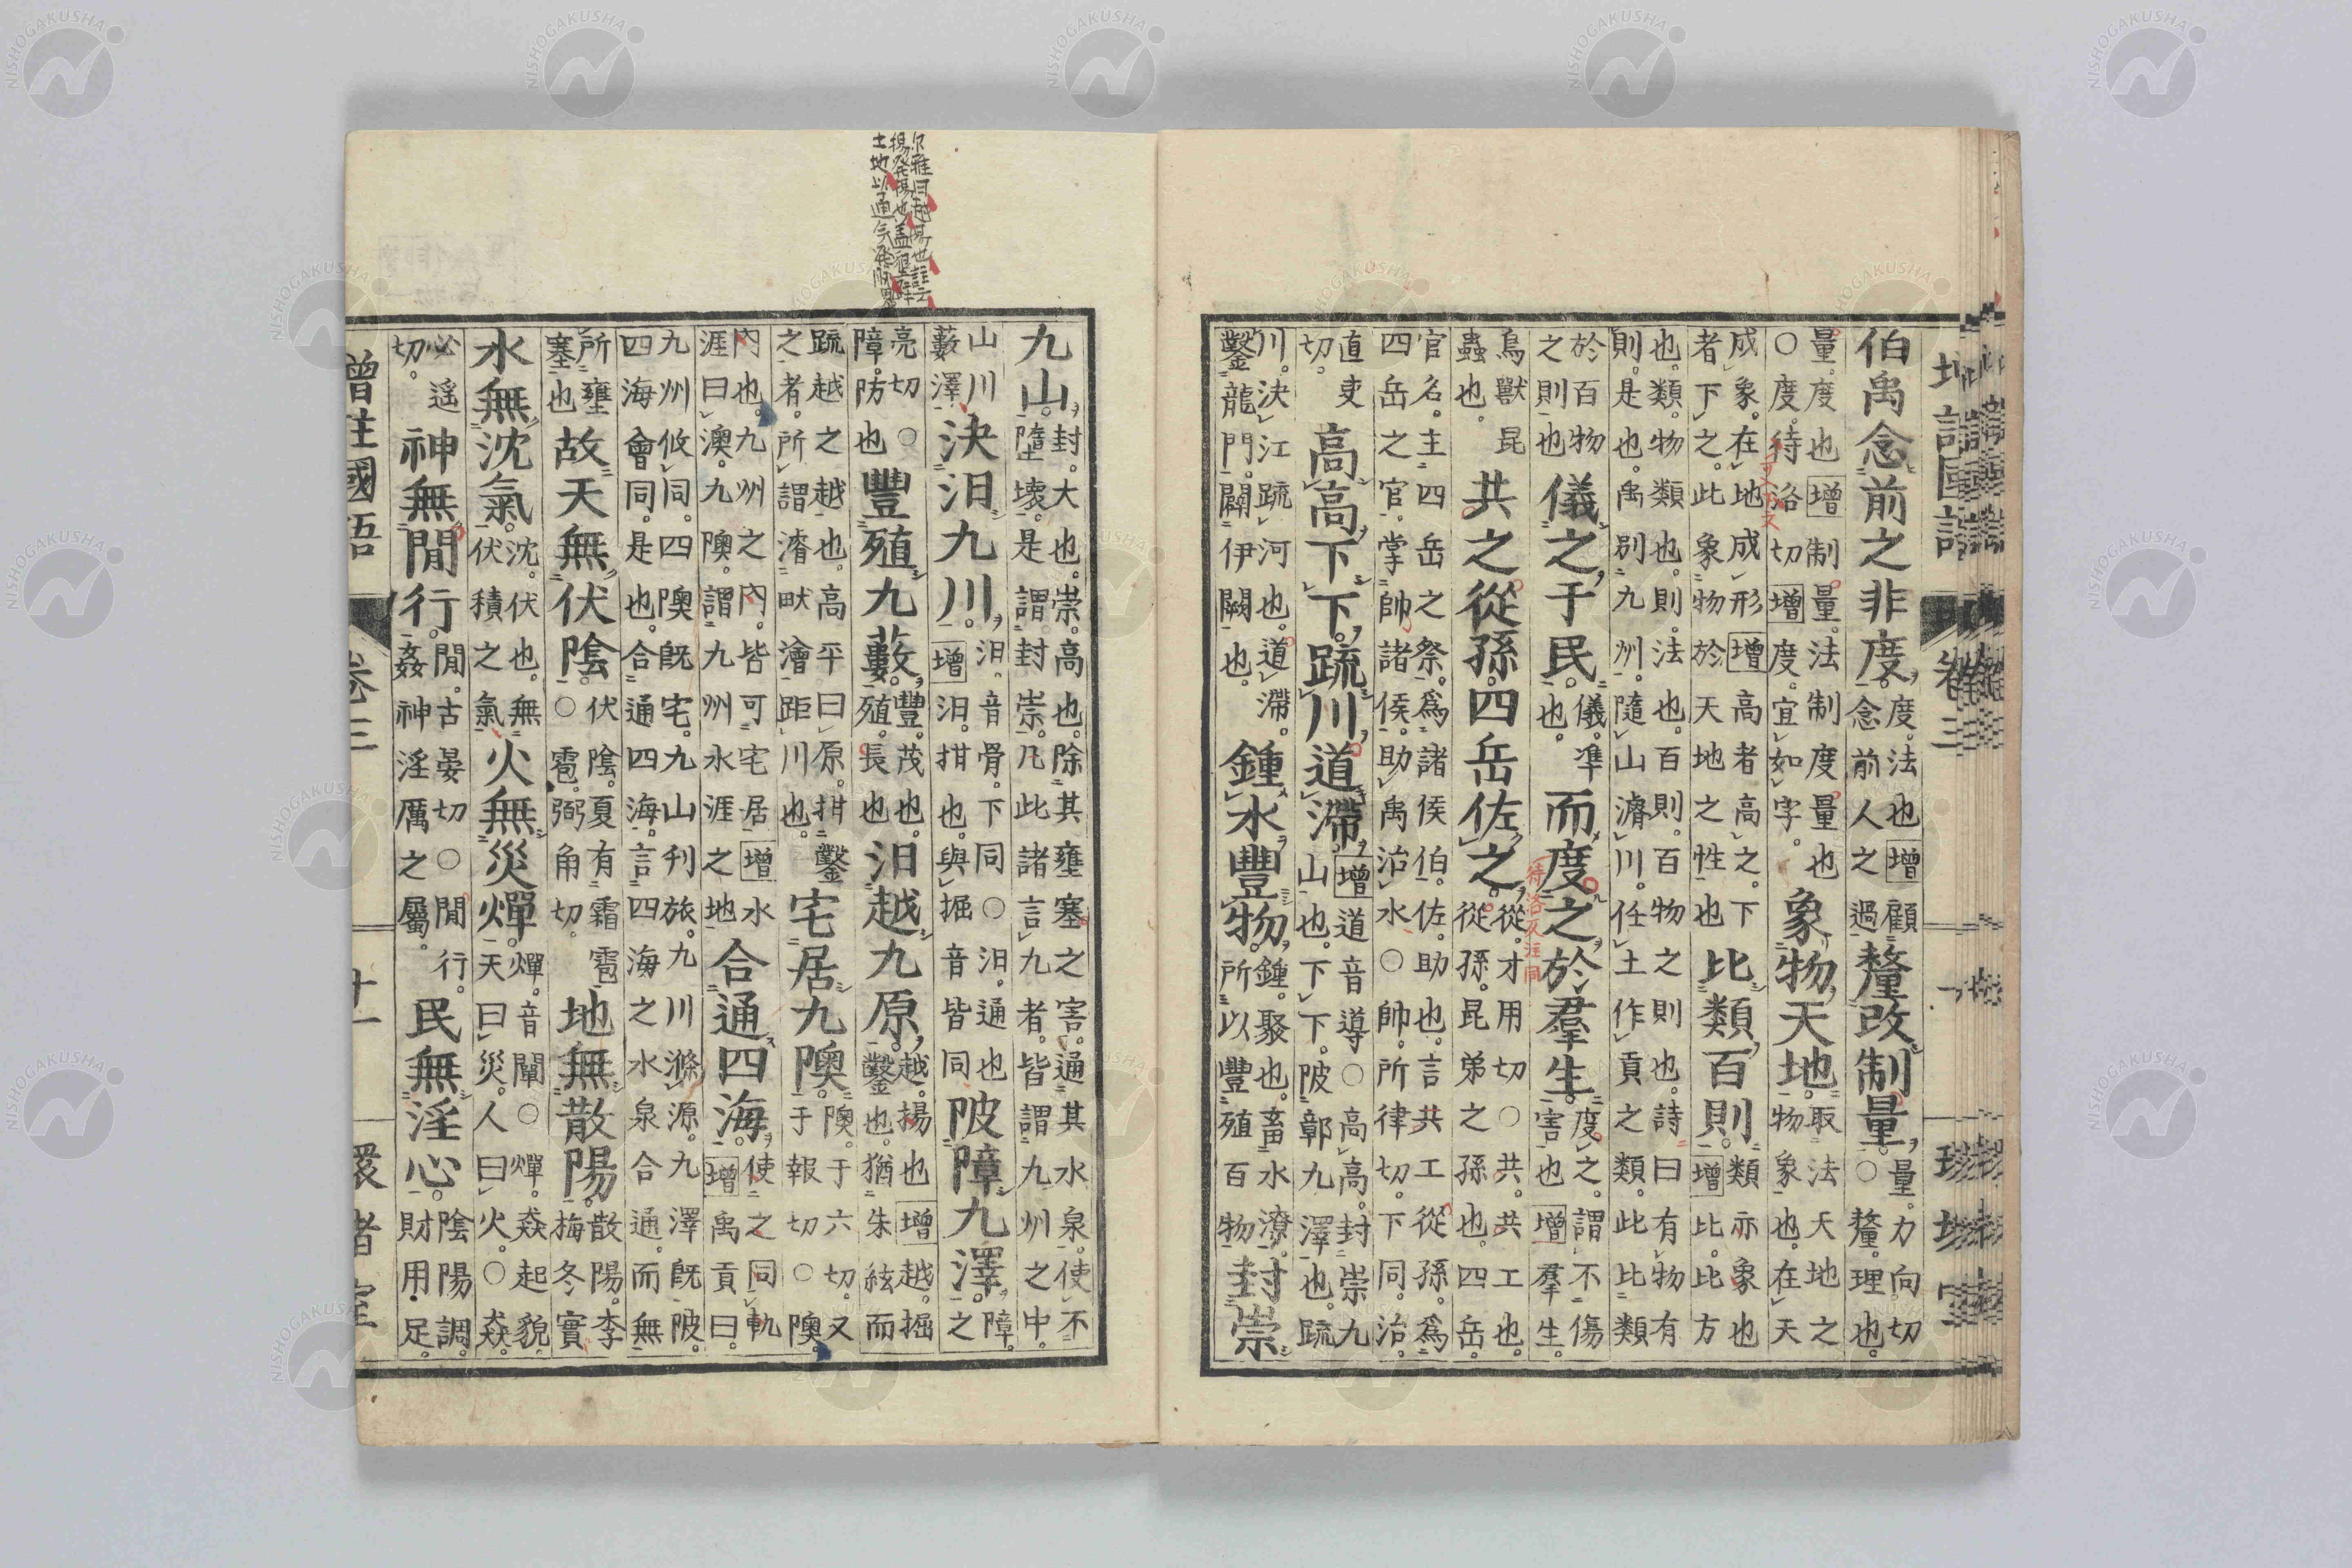 伯禹念前之非度。度。法也增顧念前人之過釐改制量。量。力向切○釐。理也。
量。度也增制量。法制度量也○度。待洛切增度。宜如字。象物天地。取法天地之物象也。在天
成象。在地成形增高者高之。下者下之。此象物於天地之性也比類百則。類亦象也增比。比方
也。類。物類也。則。法也。百則。百物之則也。詩曰有物有則。是也。禹別九州。隨山濬川。任土作貢之類。此比類
於百物之則也儀之于民。儀。準也。而度之於羣生。度之。謂不傷害也增羣生。
待洛反注同
鳥獸昆蟲也。共之從孫四岳佐之。從。才用切○共。共工也。從孫。昆弟之孫也。四岳。
官名。主四岳之祭。爲諸侯伯。佐。助也。言共工從孫。爲四岳之官。掌帥諸侯。助禹治水○帥。所律切。下同。治。
直吏切。高高下下。疏川道滯。增道音導○高高。封崇九山也。下下。陂鄣九澤也。疏
川。決江疏河也。道滯。鑿龍門。闢伊闕也。鍾水豐物。鍾。聚也。畜水潦。所以豐殖百物封崇
九山。封。大也。崇。高也。除其壅塞之害。通其水泉。使不墮壞。是謂封崇。凡此諸言九者。皆謂九州之中。
山川藪澤決汨九川。汨。音骨。下同○汨。通也增汨。搰也。與掘音皆同陂障九澤。障。之
亮切○障。防也豐殖九藪。豐。茂也。殖。長也汨越九原。越。揚也增越。掘鑿也。猶朱絃而
疏越之越也。高平曰原。搰鑿之者。所謂濬畎澮距川也。宅居九隩。隩。于六切。又于報切○隩。
內也。九州之內。皆可宅居增水涯曰澳。九隩。謂九州水涯之地合通四海。使之同軌增禹貢曰。
九州攸同。四隩既宅。九山刋旅。九川滌源。九澤既陂。四海會同。是也。合通四海。言四海之水泉合通。而無
所壅塞也故天無伏陰。伏陰。夏有霜雹○雹。弼角切。地無散陽。散陽。李梅冬實
水無沈氣。沈。伏也。無伏積之氣火無災燀。燀。音闡○燀。焱起貌。天曰災。人曰火。○焱。
必遙切。神無閒行。閒。古晏切○閒行。姦神淫厲之屬。民無淫心。陰陽調。財用足。
增註國語 卷三 十一
NISHOGAKUSHA